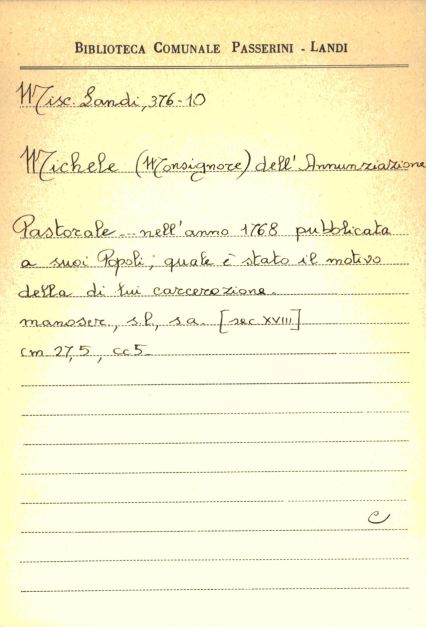 BIBLIOTECA COMUNALE PASSERINI - LANDI
Misc. Landi, 376-10
Michele (Monsignore) dell'Annunziazione
Pastorale... nell'anno 1768 pubblicata
a suoi Popoli; quale è stato il motivo
della di lui carcerazione.
manoscr., s.l., s.a. [sec. XVIII]
cm 27,5, cc 5.
C